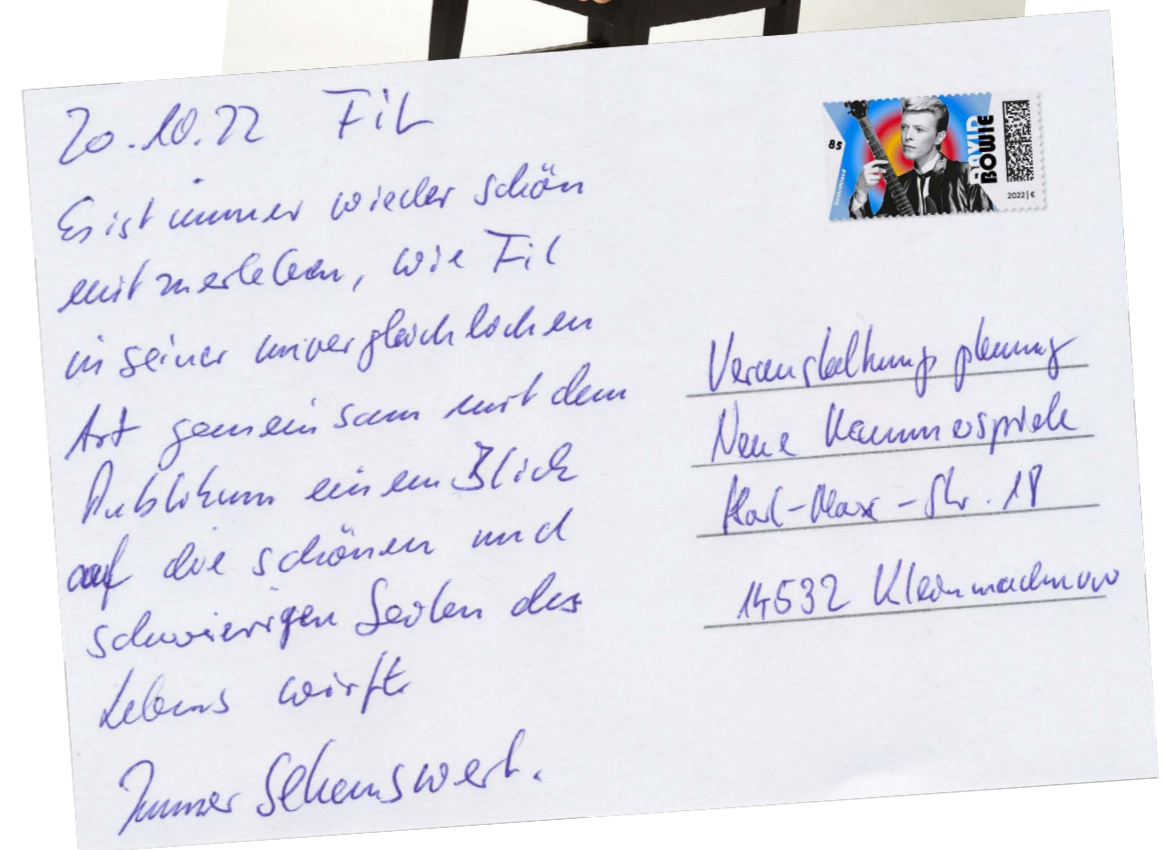 20.10.22 Fil
Es ist immer wieder schön
mitzuerleben, wie Fil
in seiner unvergleichlichen
Art gemeinsam mit dem
Publikum einen Blick
auf die schönen und
schwierigen Seiten des
Lebens wirft.
Immer Sehenswert.
85
Deutschland
DAVID
BOWIE
2022 | €
Veranstaltungsplanung
Neue Kammerspiele
Karl-Marx-Str. 18
14532 Kleinmachnow